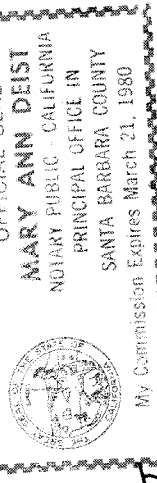 OFFICIAL SEAL
MARY ANN DEIST
NOTARY PUBLIC - CALIFORNIA
PRINCIPAL OFFICE IN
SANTA BARBARA COUNTY
My Commission Expires March 21, 1980